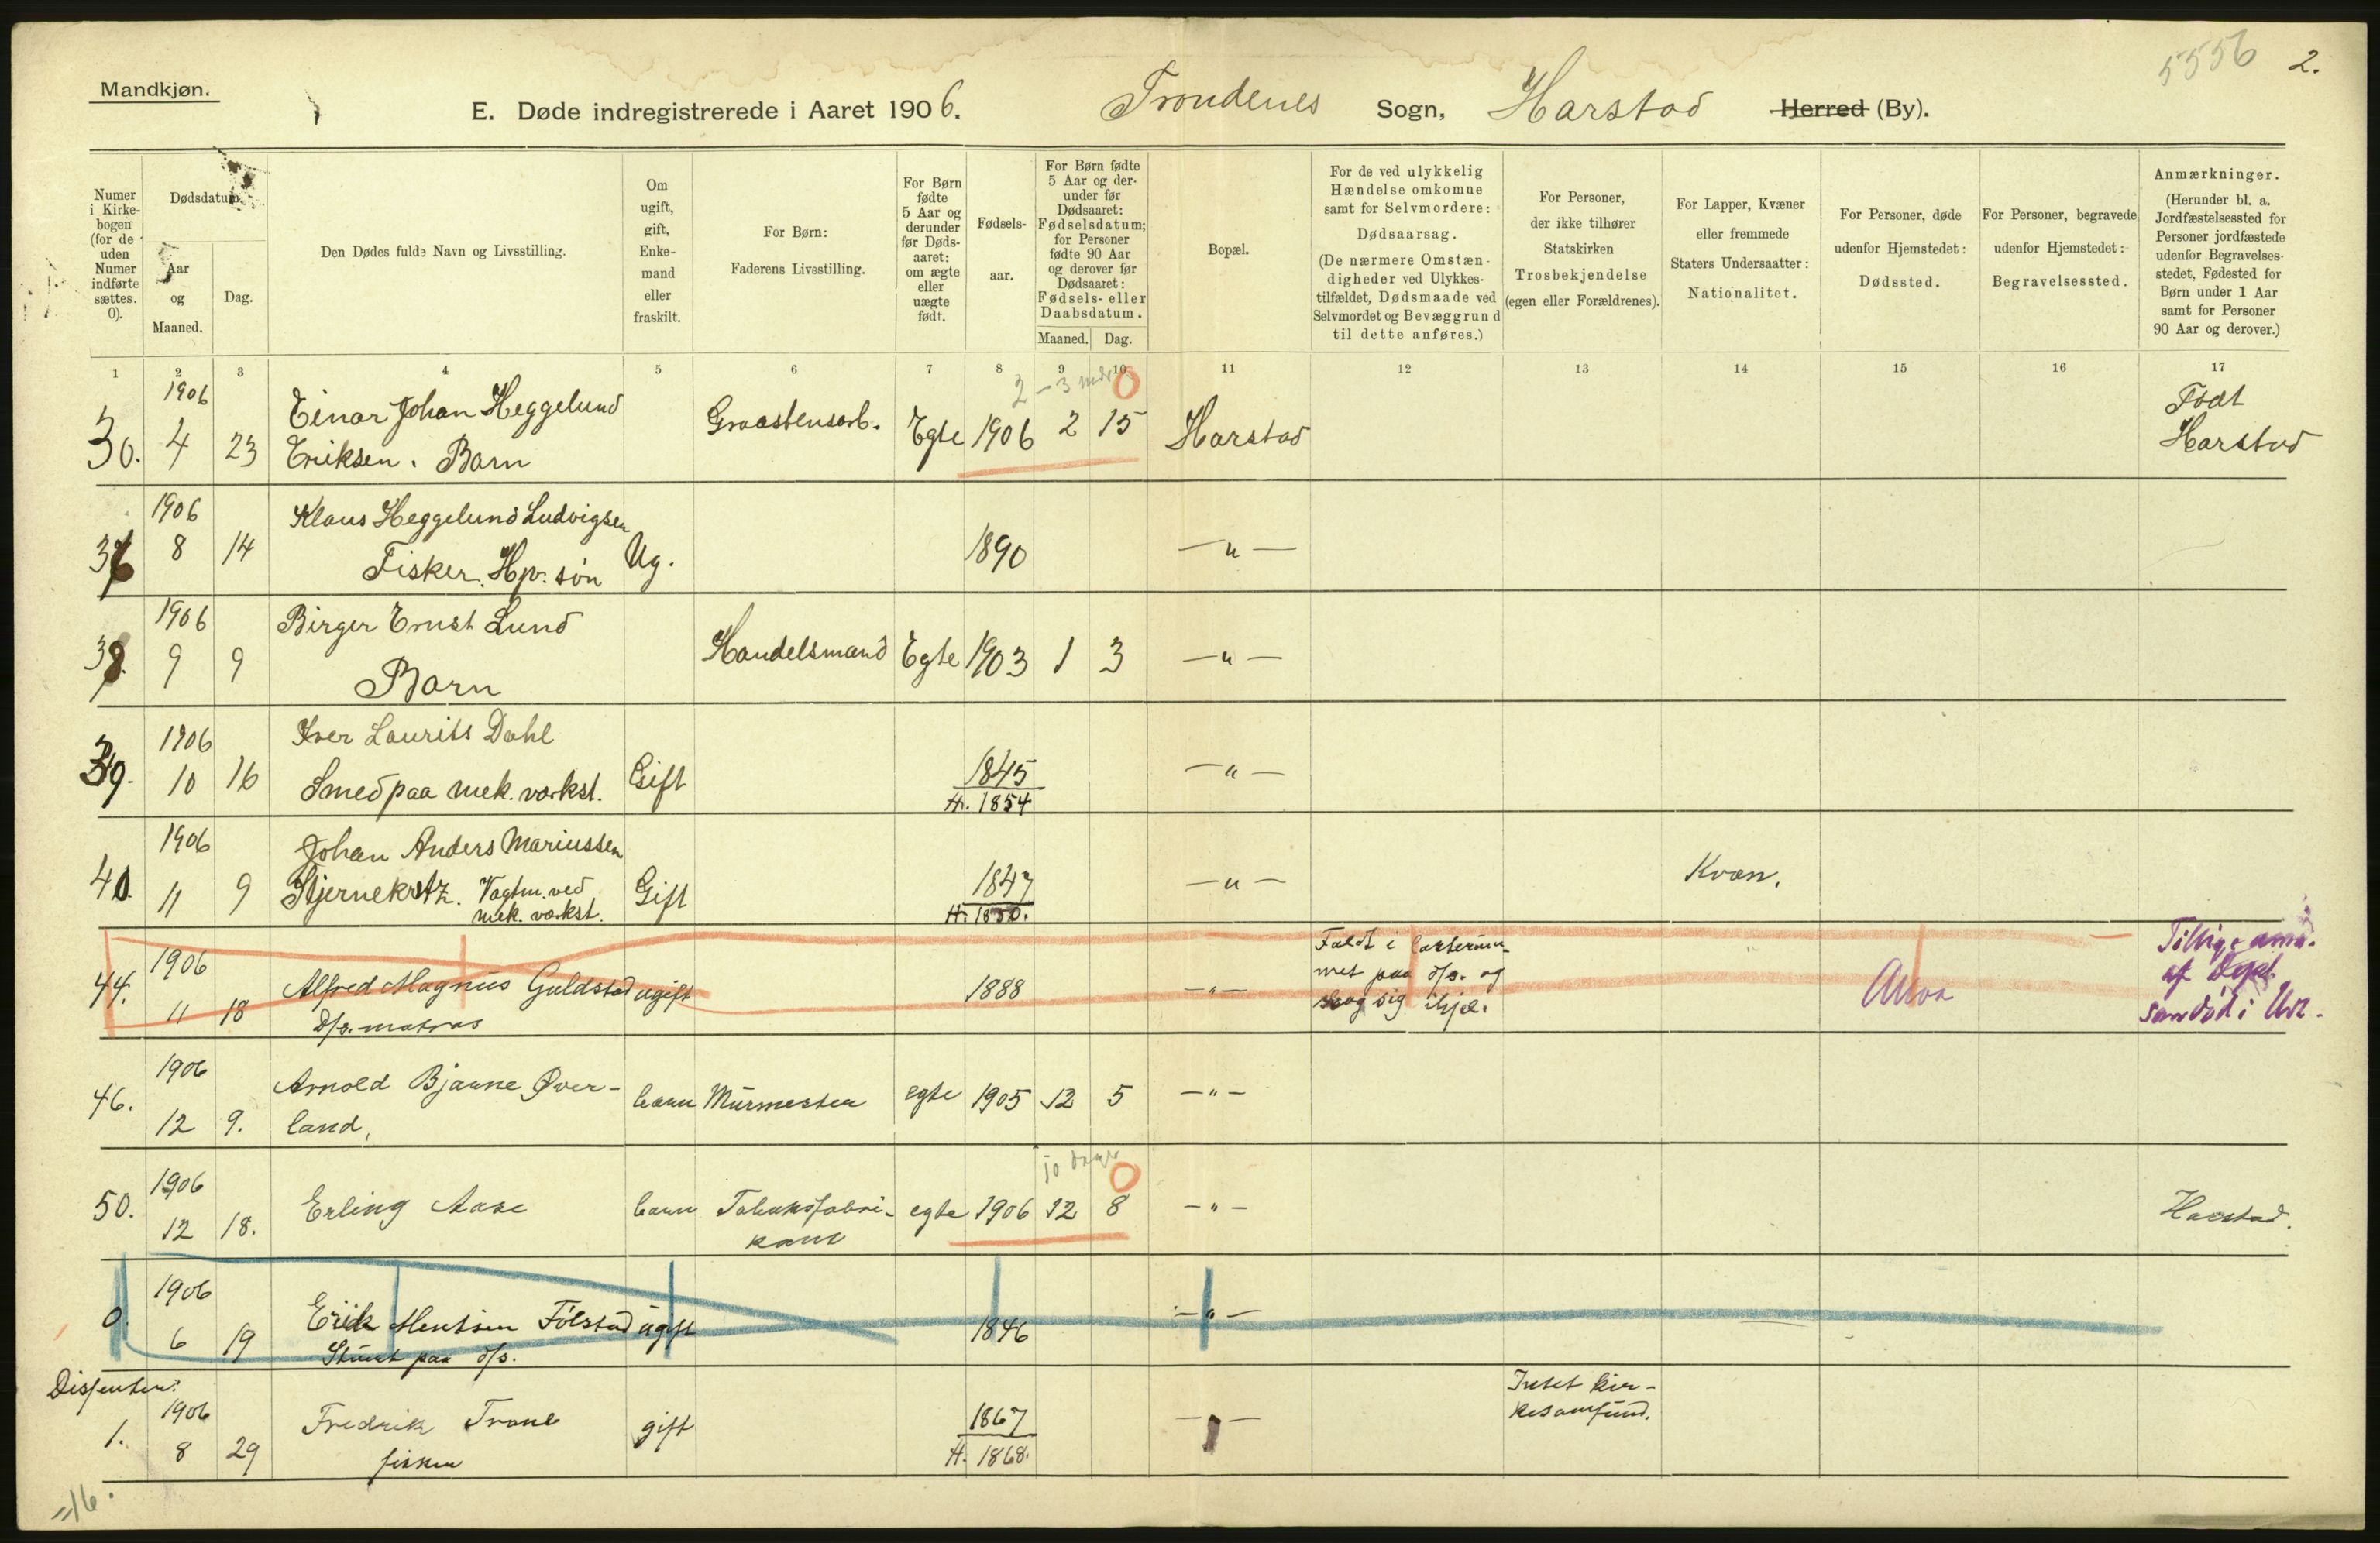 5556 2.
Mandkjøn.
E. Døde indregistrerede i Aaret 1906. Trondenes Sogn, Harstad Herred (By).
Numer i Kirkebogen (for de uden Numer indførte sættes. 0).
Dødsdatum.
Aar og Maaned.
Dag.
Den Dødes fulde Navn og Livsstilling.
Om ugift, gift, Enkemand eller fraskilt.
For Børn: Faderens Livsstilling.
For Børn fødte 5 Aar og derunder før Dødsaaret: om ægte eller uægte født.
Fødselsaar.
For Børn fødte 5 Aar og derunder før Dødsaaret: Fødselsdatum; for Personer fødte 90 Aar og derover før Dødsaaret: Fødsels- eller Daabsdatum.
Maaned. Dag.
Bopæl.
For de ved ulykkelig Hændelse omkomne samt for Selvmordere: Dødsaarsag. (De nærmere Omstændigheder ved Ulykkestilfældet, Dødsmaade ved Selvmordet og Bevæggrund til dette anføres.)
For Personer, der ikke tilhører Statskirken Trosbekjendelse (egen eller Forældrenes).
For Lapper, Kvæner eller fremmede Staters Undersaatter: Nationalitet.
For Personer, døde udenfor Hjemstedet: Dødssted.
For Personer, begravede udenfor Hjemstedet: Begravelsessted.
Anmærkninger. (Herunder bl. a. Jordfæstelsessted for Personer jordfæstede udenfor Begravelsesstedet, Fødested for Børn under 1 Aar samt for Personer 90 Aar og derover.)
1 2 3 4 5 6 7 8 9 10 11 12 13 14 15 16 17
2-3 mdr 0
30. 1906 4 23 Einar Johan Heggelund
Eriksen. Barn Graastensarb. Egte 1906 2 15 Harstad Født
Harstad
36 1906 8 14 Klaus Heggelund Ludvigsen
Fisker. Hp. søn Ug. 1890 — " —
38. 1906 9 9 Birger Ernst Lund
Barn Handelsmand Egte 1903 1 3 — " —
39. 1906 10 16 Iver Laurits Dahl
Smed paa mek. værkst. Gift 1845
H. 1854 — " —
40. 1906 11 9 Johan Anders Mariussen
Vagtm. ved
mek. værkst. Gift 1847
H. 1850. — " — Kvæn.
44. 1906 11 18 Alfred Magnus Guldstad
D/s. matros ugift 1888 — " — Faldt i lasterum-
met paa d/s. og
slog sig ihjel.
46. 1906 12 9. Arnold Bjarne Øver-
land, barn Murmester egte 1905 12 5 — " —
10 dage 0
50. 1906 12 18. Erling Aase barn Tobaksfabri-
kant egte 1906 12 8 — " — Harstad.
0. 1906 6 19 Erik Føbstad
Stuert paa d/s. ugift 1846 — " —
Dissenter:
1. 1906 8 29 Fredrik Trane
fisker gift 1867
H. 1868. — " — Intet kir-
kesamfund.
=16.